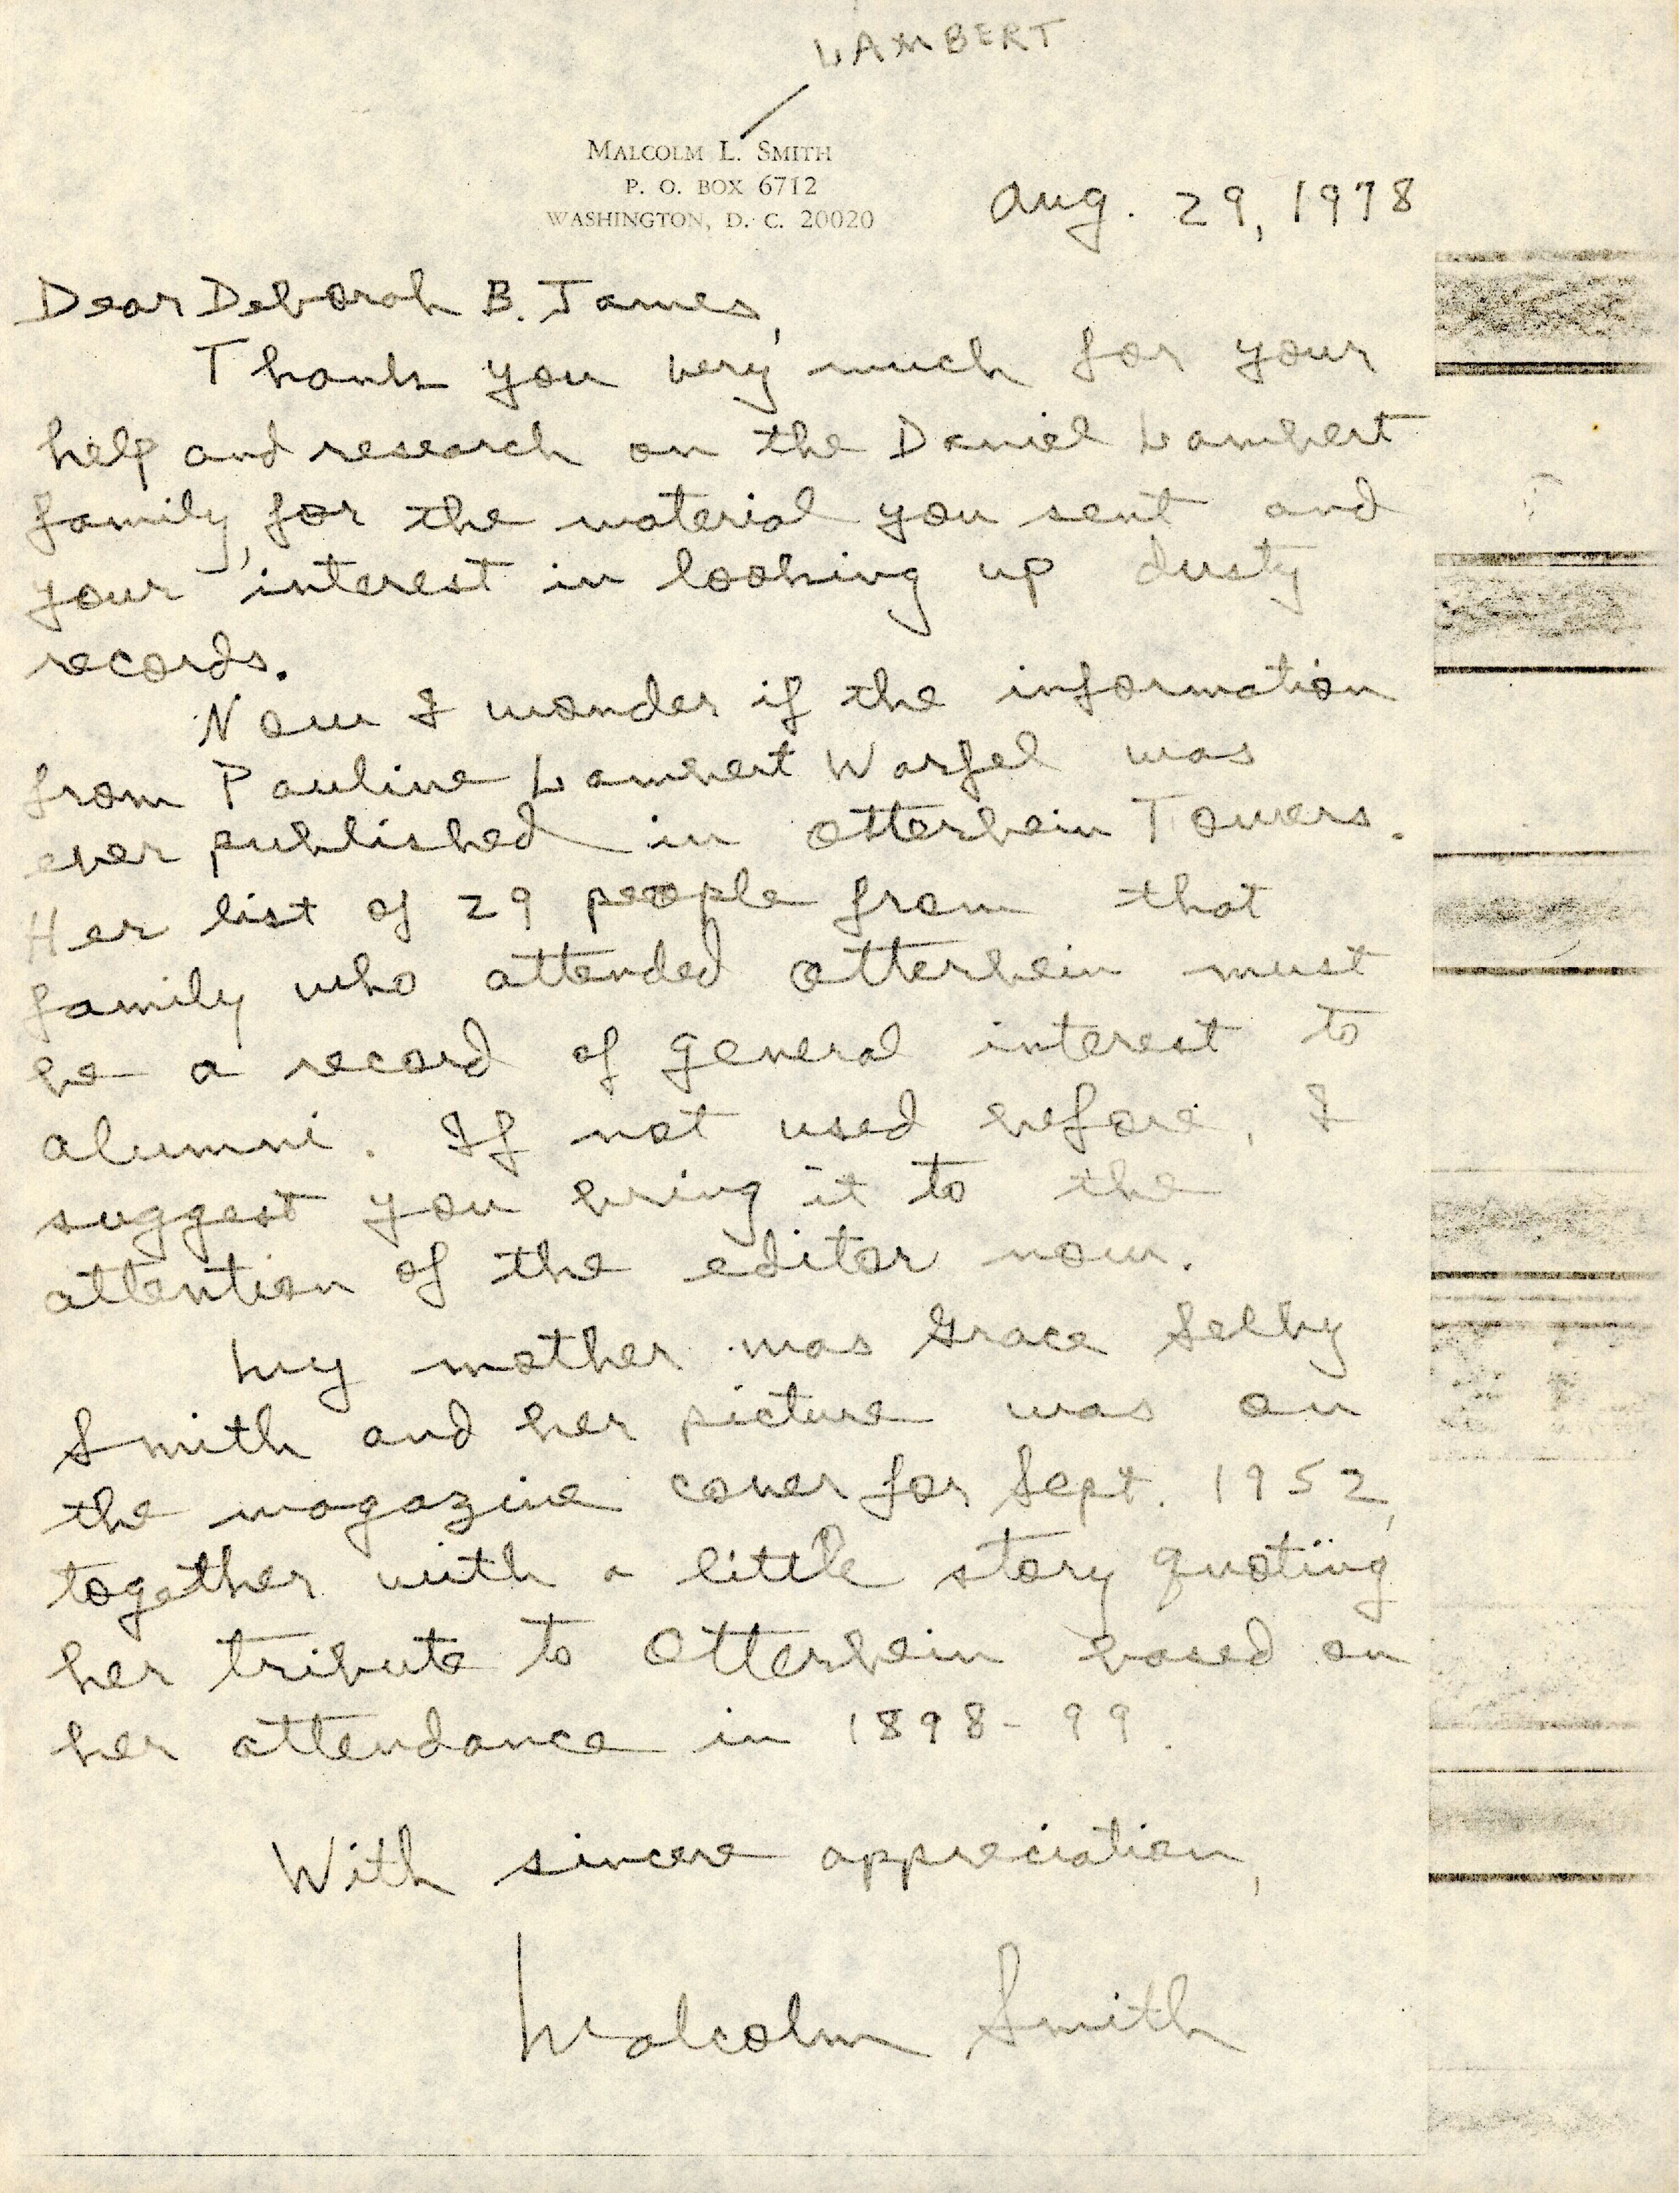 LAMBERT
MALCOLM L. SMITH
P. O. BOX 6712
WASHINGTON, D. C. 20020
Aug. 29, 1978
Dear Deborah B. James,
Thank you very much for your
help and research on the Daniel Lambert
family, for the material you sent and
your interest in looking up dusty
records.
Now I wonder if the information
from Pauline Lambert Warfel was
ever published in Otterbein Towers.
Her list of 29 people from that
family who attended Otterbein must
be a record of general interest to
alumni. If not used before, I
suggest you bring it to the
attention of the editor now.
My mother was Grace Selby
Smith and her picture was on
the magazine cover for Sept. 1952,
together with a little story quoting
her tribute to Otterbein based on
her attendance in 1898-99.
With sincere appreciation,
Malcolm Smith